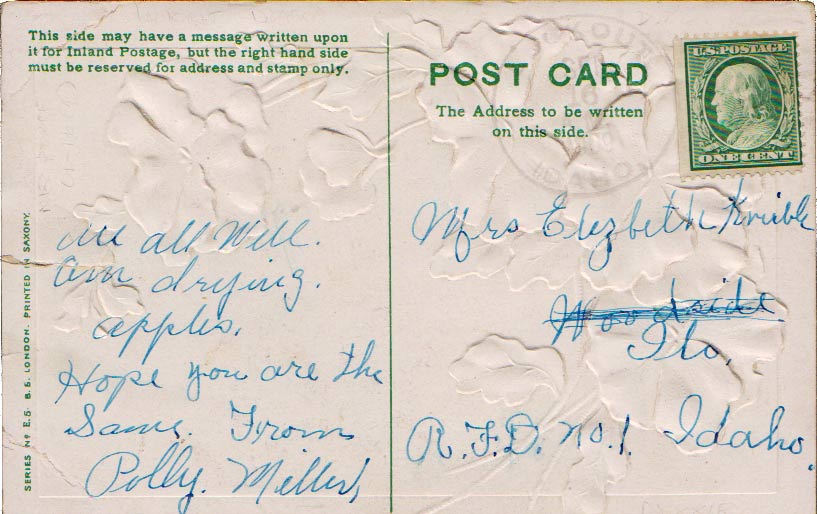 This side may have a message written upon
it for Inland Postage, but the right hand side
must be reserved for address and stamp only.
POST CARD
The Address to be written
on this side.
U.S. POSTAGE
ONE CENT
IDAHO
all Well.
am drying.
apples.
Hope you are the
Same. From
Polly. Miller
Mrs Elizbeth
Woodside
Ilo,
R.F.D. No. 1. Idaho.
SERIES Nº E.5 B.S. LONDON. PRINTED IN SAXONY.